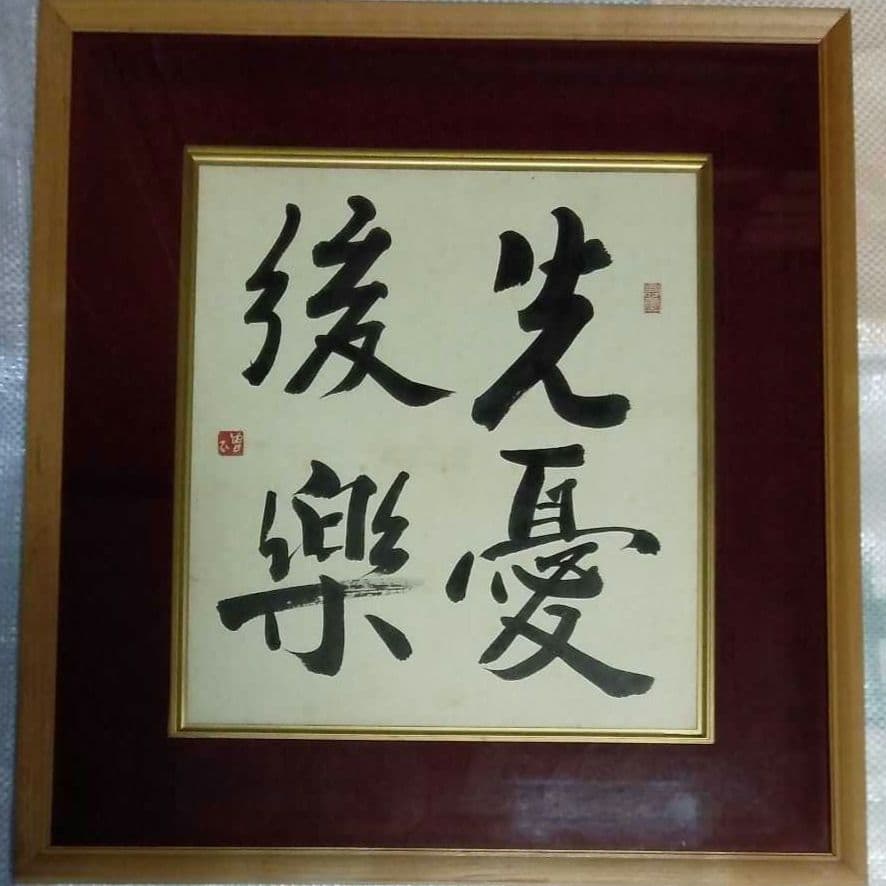 先憂
後樂